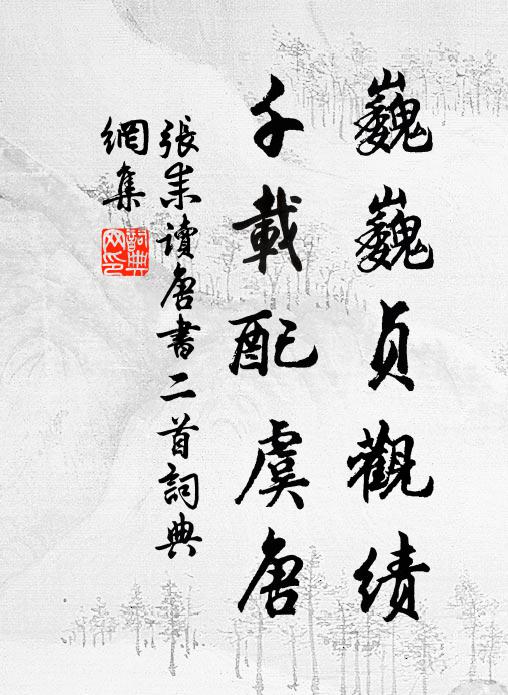 巍巍貞觀績
千載配虞唐
張耒讀唐書二首詞典
網集
詞典
网印